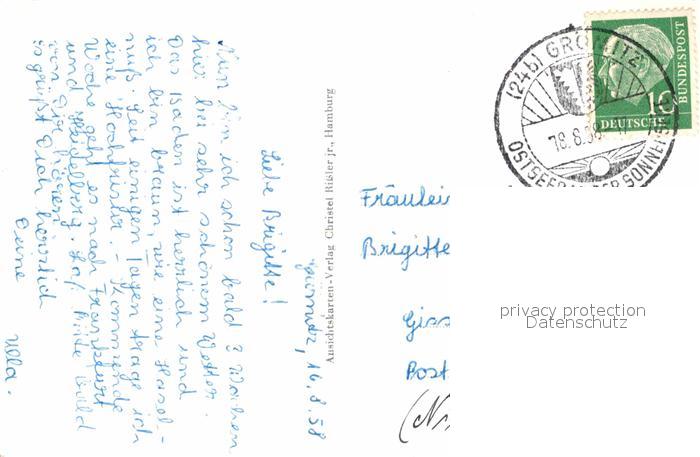 Grömitz, 16.8.58
Liebe Brigitte!
Nun bin ich schon bald 3 Wochen
hier bei sehr schönem Wetter.
Das Baden ist herrlich und
ich bin braun, wie eine Hasel-
nuß. Seit einigen Tagen trage ich
eine "Hochfrisur". - Kommende
Woche geht es nach Frankfurt
und Heidelberg. Laß bitte bald
von Dir hören!
Es grüßt Dich herzlich
Deine
Ulla.
Ansichtskarten-Verlag Christel Rißler jr., Hamburg
(24b) GRÖMITZ
18.8.58
OSTSEEBAD DER SONNENSEITE
10
DEUTSCHE
BUNDESPOST
Fräulein
Brigitte
Giss
Post
(N
privacy protection
Datenschutz